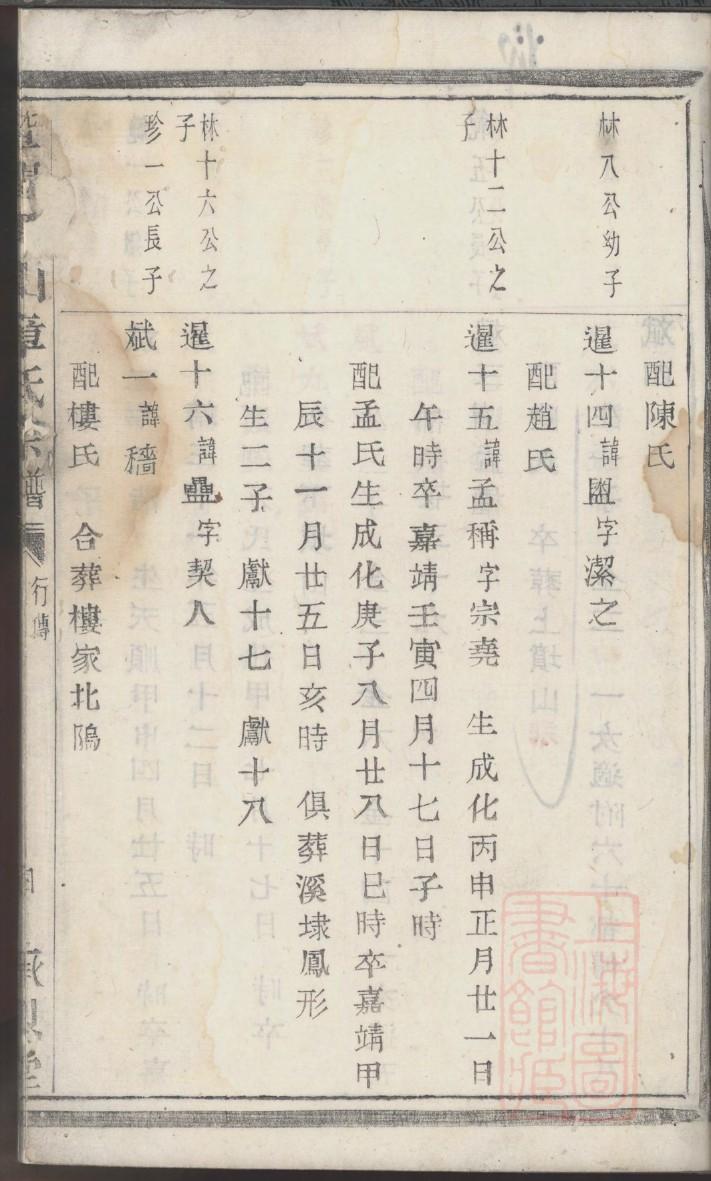 配陳氏
林八公幼子
暹十四諱盥字潔之
配趙氏
林十二公之子
暹十五諱孟稱字宗堯 生成化丙申正月廿一日
午時卒嘉靖壬寅四月十七日子時
配孟氏生成化庚子八月廿八日巳時卒嘉靖甲
辰十一月廿五日亥時 俱葬溪埭鳳形
生二子 獻十七 獻十八
林十六公之子
暹十六諱字契人
珍一公長子
斌一諱穡
配樓氏 合葬樓家北隖
章氏宗譜
行傳
上海圖書館藏